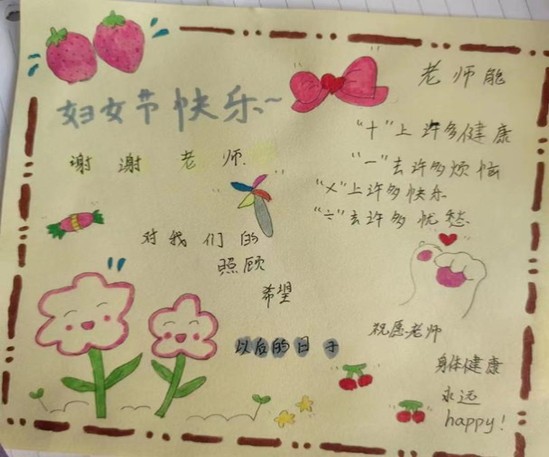 妇女节快乐~
谢谢老师
对我们的
照顾
希望
以后的日子
老师能
"+"上许多健康
"一"去许多烦恼
"×"上许多快乐
"÷"去许多忧愁
祝愿老师
身体健康
永远
happy!